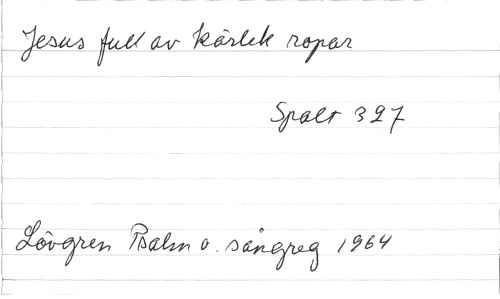 Jesus full av kärlek ropar
Spalt 327
Lövgren Psalm o. sångreg 1964